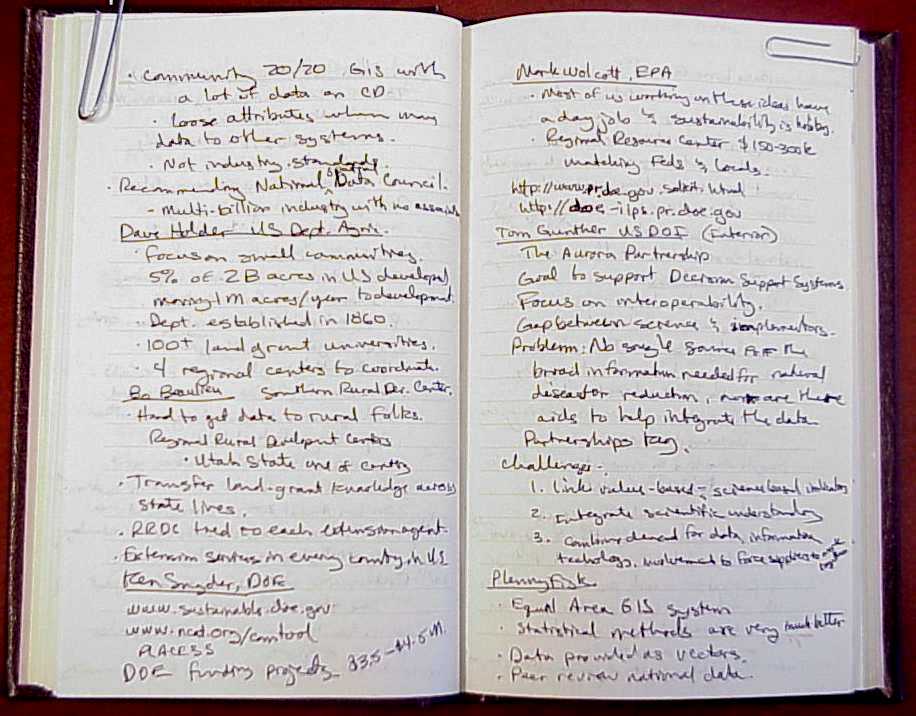 · Community 20/20 GIS with
a lot of data on CD
· Loose attributes when mov
data to other systems.
· Not industry standards.
spatial
· Recommending National Data Council.
- Multi-billion industry with no associatn
Dave Holder US Dept. Agric.
· Focus on small communities.
5% of 2B acres in US developed
moving 1M acres/year to development.
· Dept. established in 1860.
· 100+ land grant universities.
· 4 regional centers to coordinate.
Bo Beaulieu Southern Rural Dev. Center.
· Hard to get data to rural folks.
Regional Rural Development Centers
· Utah State one of centers
· Transfer land-grant knowledge across
state lines.
· RRDC tied to each extension agent
· Extension services in every county in US
Ken Snyder, DOE
www.sustainable.doe.gov
www.ncat.org/comtool
PLACE3S
DOE funding projects $3.5-$4.5M.
Mark Wolcott, EPA
· Most of us working on these ideas have
a day job & sustainability is hobby.
· Regional Resource Center $150-300k
matching Feds & Locals.
http://www.pr.doe.gov
http://doe-ilps.pr.doe.gov
Tom Gunther US DOI (Interior)
The Aurora Partnership
Goal to support Decision Support Systems
Focus on interoperability.
Gap between science & implementors.
Problem: No single source for the
broad information needed for natural
disaster reduction, nor are there
aids to help integrate the data
Partnerships key.
Challenges.
1. link value-based & science based indicators
2. Integrate scientific understanding
3. Combine demand for data, information
technology, involvement to force suppliers to
Plenny Fisk
· Equal Area GIS system
· Statistical methods are very much better
· Data provided as vectors.
· Peer review national data.